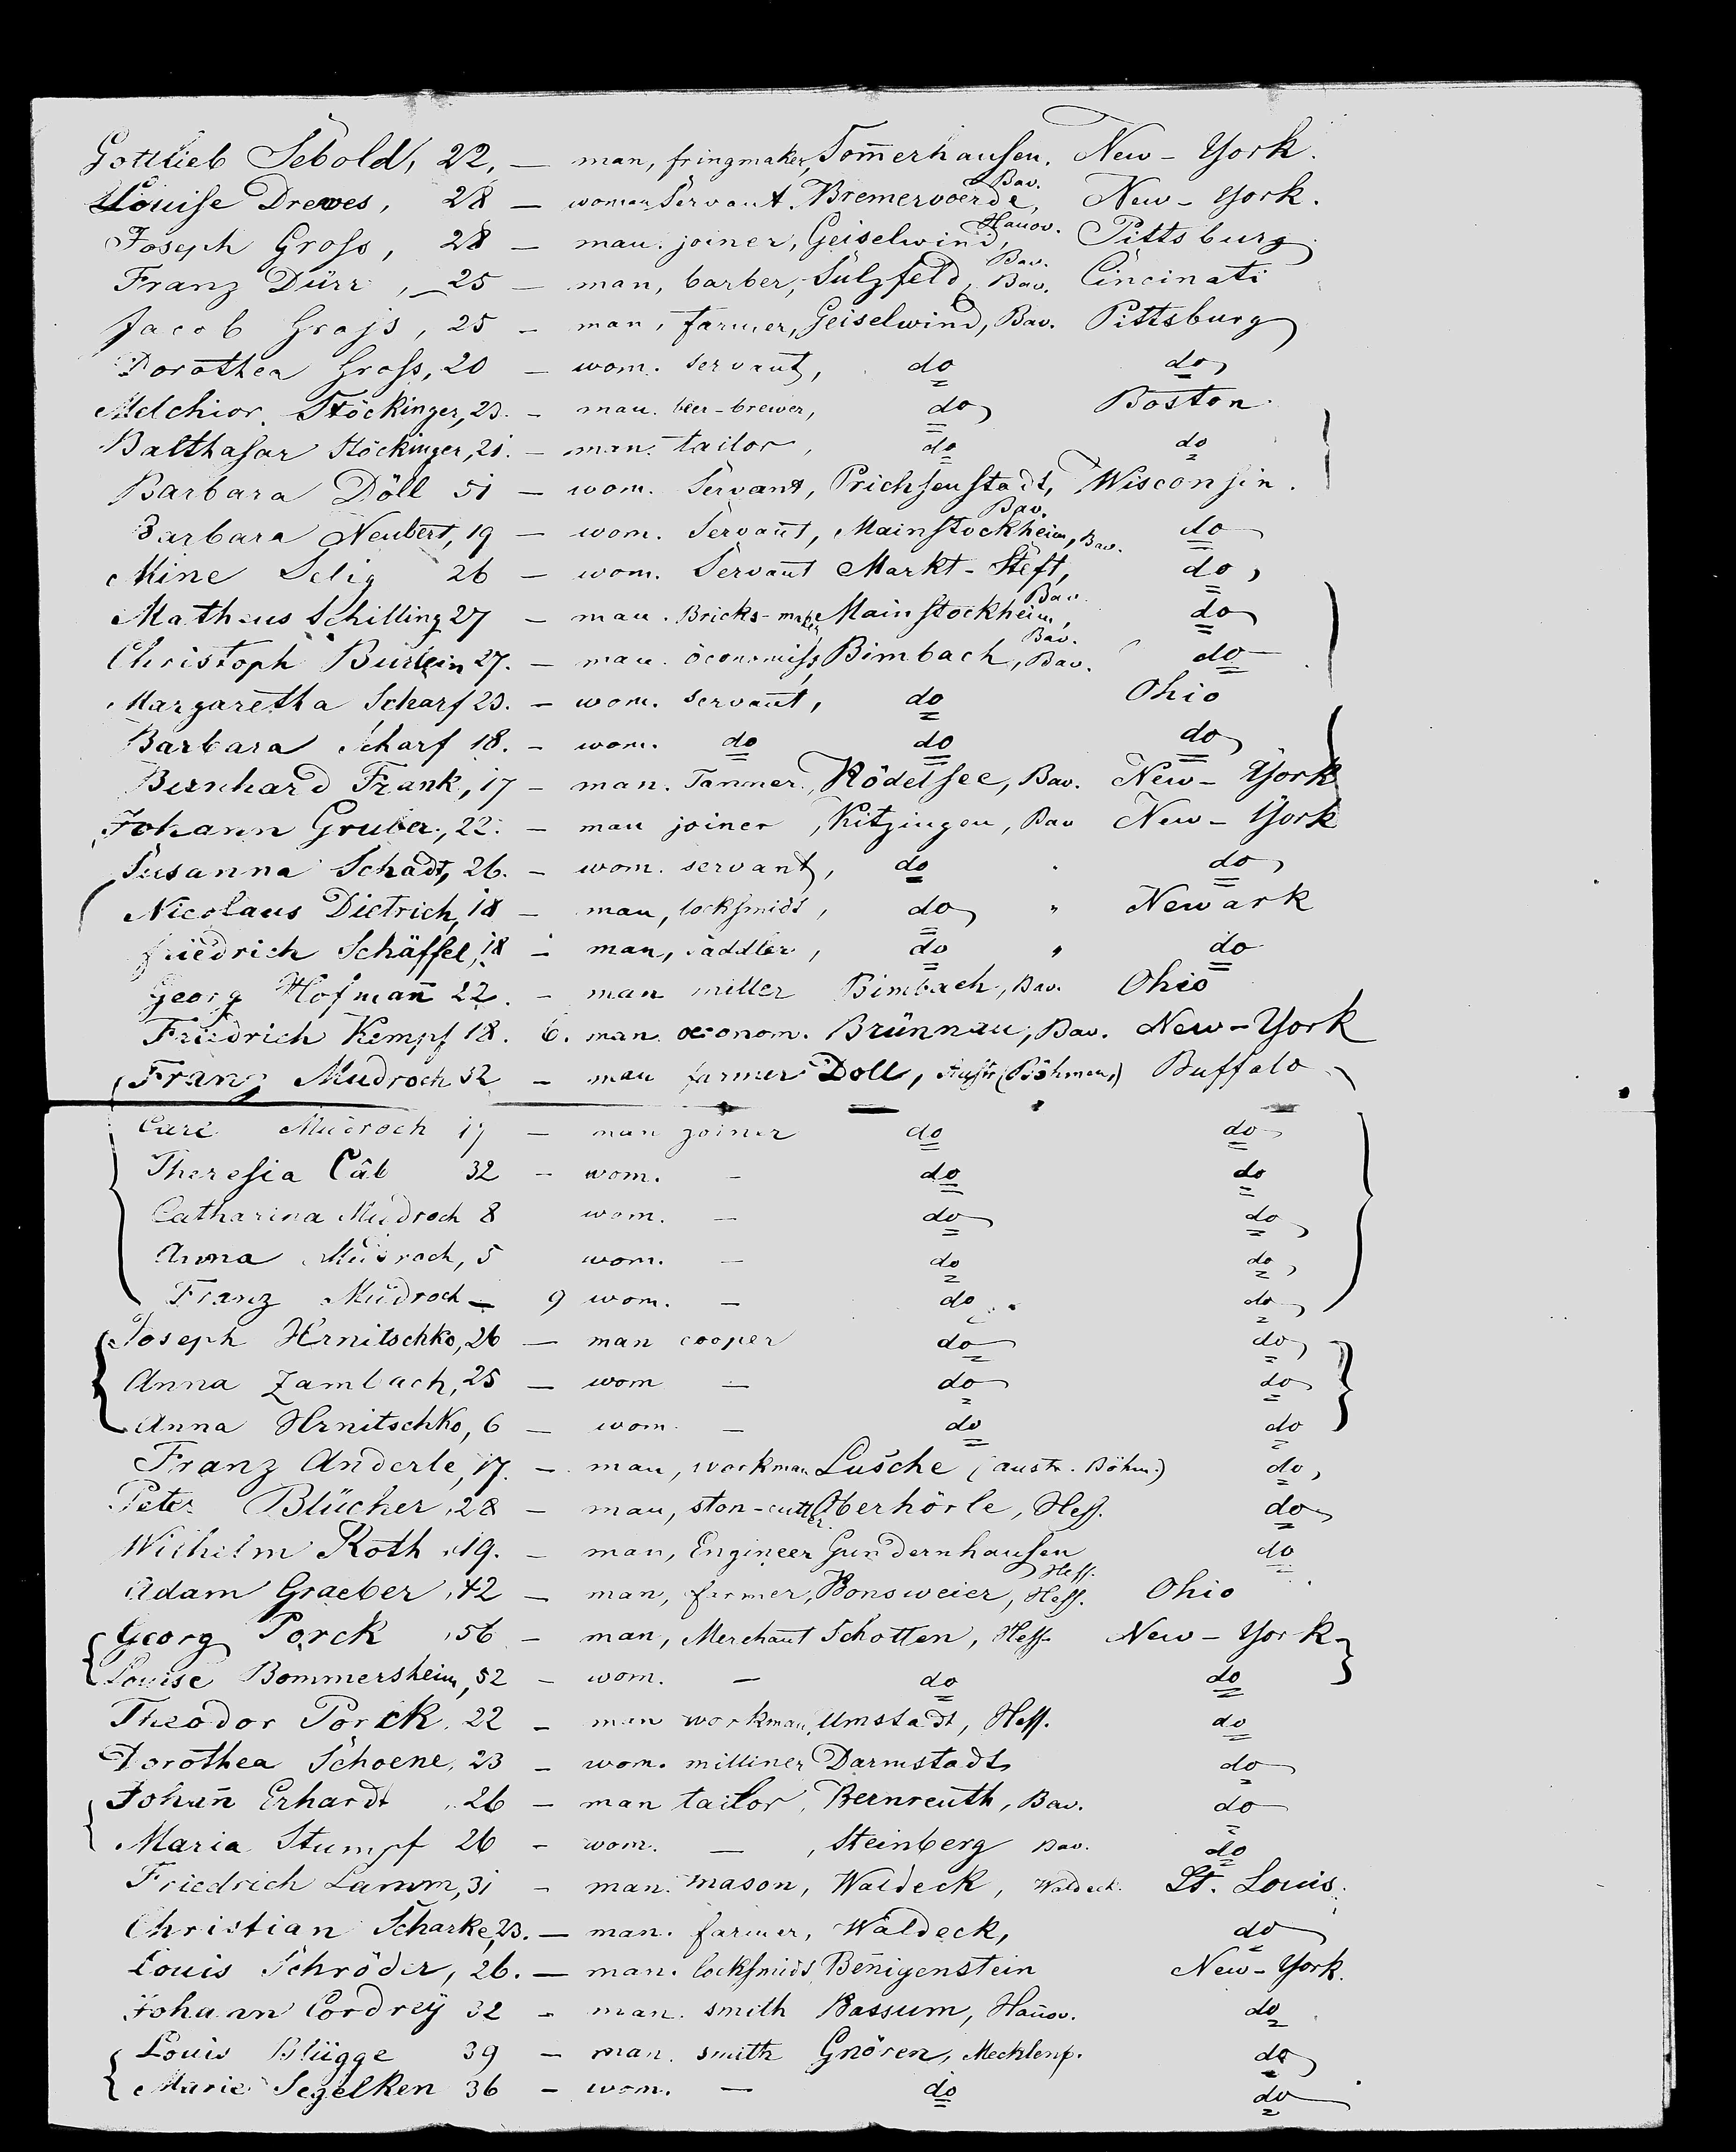 Gottlieb Sebold, 22, — man, fringmaker, Som̄erhausen, Bav. New-York.
Louise Drewes, 28 — woman Servant. Bremervoerde, Hanov. New-York.
Joseph Gross, 28 — man. joiner, Geiselwind, Bav. Pittsburg
Franz Dürr, 25 — man, barber, Sulzfeld, Bav. Cincinati
Jacob Gross, 25 — man, farmer, Geiselwind, Bav. Pittsburg
Dorothea Gross, 20 — wom. servant, do do
Melchior Stöckinger, 23. — man. beer-brewer, do Boston
Balthasar Stöckinger, 21. — man. tailor, do do
Barbara Döll 51 — wom. Servant, Prichsenstadt, Bav. Wisconsin.
Barbara Neubert, 19 — wom. Servant, Mainstockheim, Bav. do
Mine Selig 26 — wom. Servant Markt-Steft, Bav. do,
Matheus Schilling 27 — man. Bricks-maker, Mainstockheim, Bav. do
Christoph 27. — man. Bimbach, Bav. do
Margaretha Scharf 23. — wom. servant, do Ohio
Barbara Scharf 18. — wom. do do do
Bernhard Frank, 17 — man. Tanner, Rödelsee, Bav. New-York
Johann Gruber, 22. — man joiner, Kitzingen, Bav New-York
Susanna Schadt, 26. — wom. servant, do " do
Nicolaus Dietrich, 18 — man, locksmids, do " Newark
Friedrich Schäffel, 18 — man, saddler, do " do
Georg Hofman̄ 22. — man miller Bimbach, Bav. Ohio
Friedrich Kempf 18. 6. man. oeconom. Brünnau, Bav. New-York
Franz Mudroch 32 — man farmer Doll, (Böhmen) Buffalo
Carl Mudroch 17 — man joiner do do
Theresia Câb 32 — wom. — do do
Catharina Mudroch 8 wom. — do do
Anna Mudroch, 5 wom. — do do,
Franz Mudroch — 9 wom. — do do
Joseph Hrnitschko, 26 — man cooper do do
Anna Zambach, 25 — wom — do do
Anna Hrnitschko, 6 — wom. — do do
Franz Anderle, 17. — man, workman Lusche (austr. Böhm.) do,
Peter Blücher, 28 — man, ston-cutter. Oberhörle, Hess. do
Wilhelm Roth, 19. — man, Engineer Gundernhausen Hess. do
Adam Graeber, 42 — man, farmer, Bonsweier, Hess. Ohio
Georg Porck, 56 — man, Merchant Schotten, Hess. New-York
Louise Bommersheim, 52 — wom. — do do
Theodor Porck, 22 — man workman, Umstadt, Hess. do
Dorothea Schoene, 23 — wom. milliner Darmstadt do
Johan̄ Erhardt, 26 — man tailor, Bernreuth, Bav. do
Maria Stumpf 26 — wom. —, Steinberg Bav. do
Friedrich Lamm, 31 — man. mason, Waldeck, Waldeck. St. Louis.
Christian Scharke, 23. — man. farmer, Waldeck, do
Louis Schröder, 26. — man. locksmids, Ben̄igenstein New-York.
Johann Cordrey 32 — man. smith Bassum, Hanov. do
Louis Blügge 39 — man. smith Gnoren, do
Marie Segelken 36 — wom. — do do